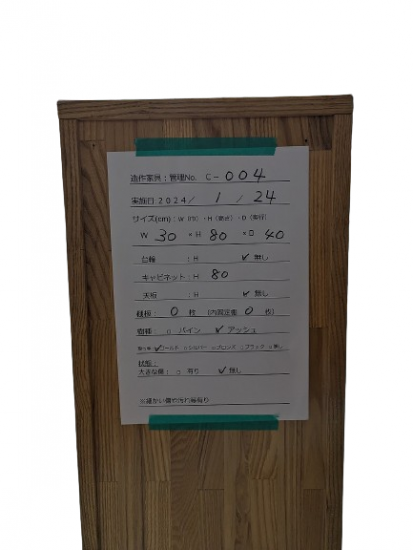 造作家具：管理No. C－004
実施日2024／1／24
サイズ(cm)：W（巾）×H（高さ）×D（奥行）
W 30 ×H 80 ×D 40
台輪 ：H ✓無し
キャビネット：H 80
天板 ：H ✓無し
棚板： 0 枚 （内固定棚 0 枚）
樹種： □ パイン ✓アッシュ
✓ゴールド □シルバー □ブロンズ □ブラック
状態：
大きな傷： □ 有り ✓無し
※細かい傷や汚れ等有り